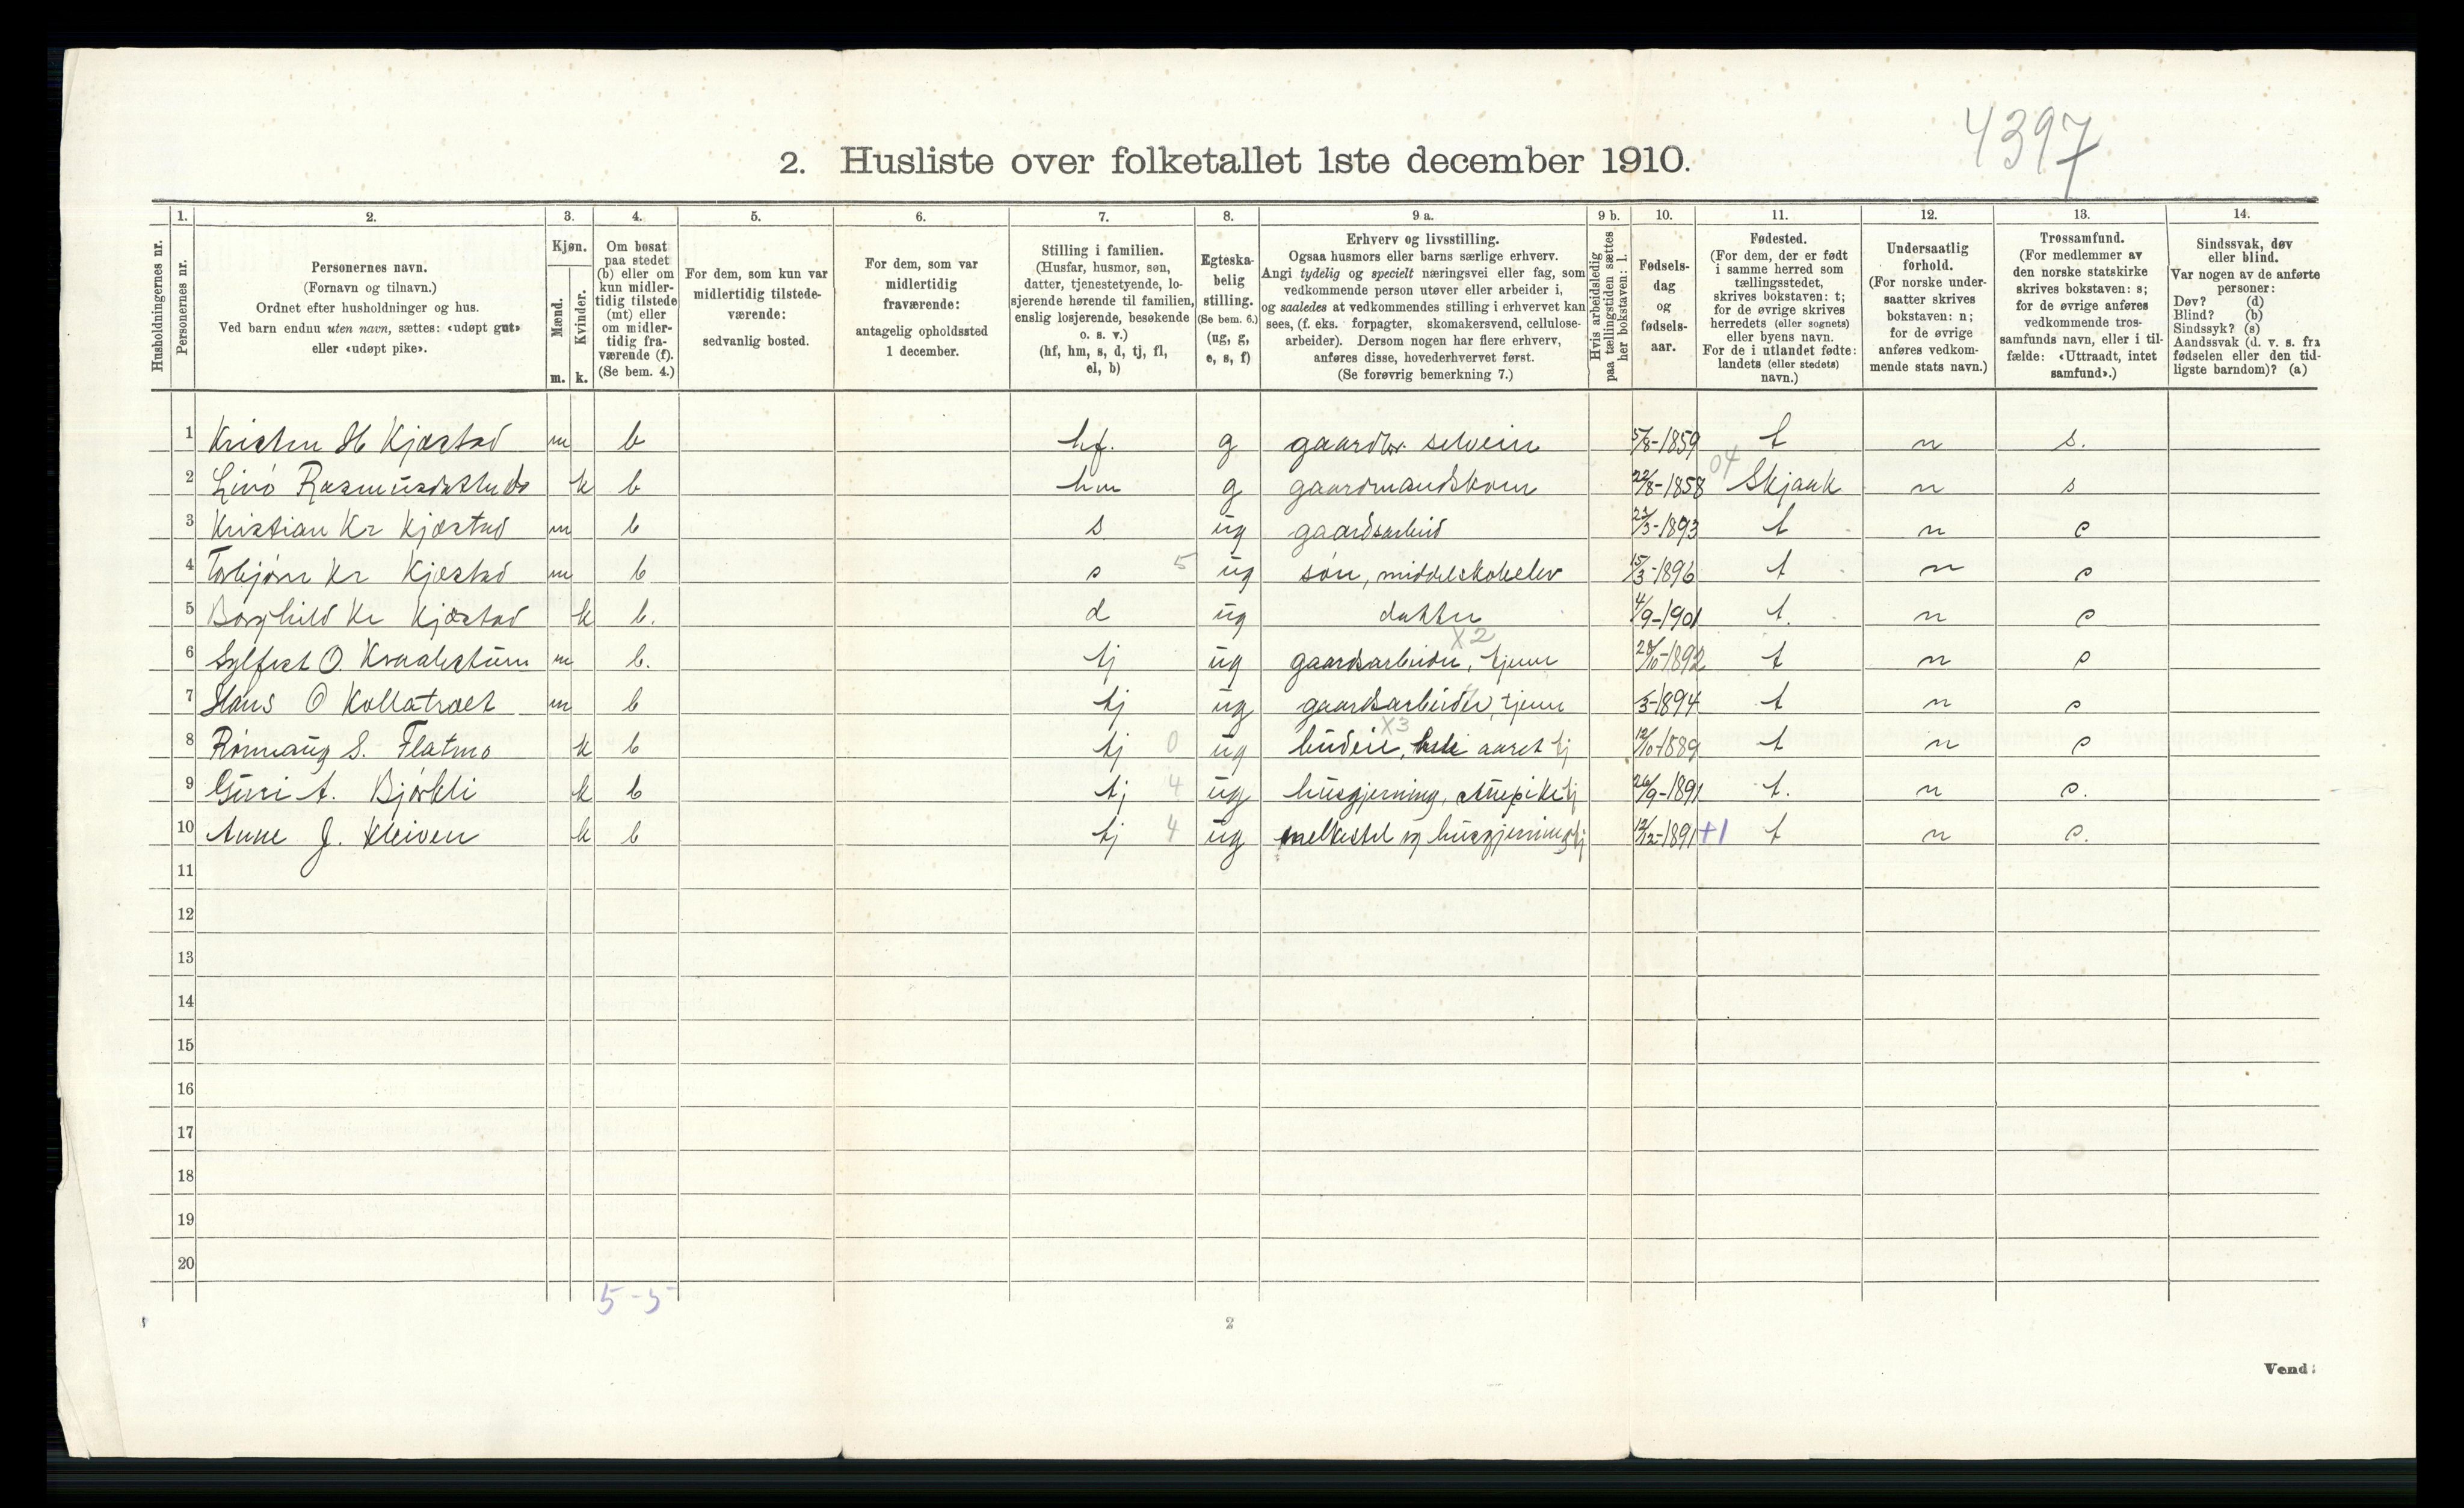 4397
2. Husliste over folketallet 1ste december 1910.
Husholdningernes nr.
1. Personernes nr.
2. Personernes navn.
(Fornavn og tilnavn.)
Ordnet efter husholdninger og hus.
Ved barn endnu uten navn, sættes: «udøpt gut»
eller «udøpt pike».
3. Kjøn.
Mænd. m.
Kvinder. k.
4. Om bosat
paa stedet
(b) eller om
kun midler-
tidig tilstede
(mt) eller
om midler-
tidig fra-
værende (f).
(Se bem. 4.)
5. For dem, som kun var
midlertidig tilstede-
værende:
sedvanlig bosted.
6. For dem, som var
midlertidig
fraværende:
antagelig opholdssted
1 december.
7. Stilling i familien.
(Husfar, husmor, søn,
datter, tjenestetyende, lo-
sjerende hørende til familien,
enslig losjerende, besøkende
o. s. v.)
(hf, hm, s, d, tj, fl,
el, b)
8. Egteska-
belig
stilling.
(Se bem. 6.)
(ug, g,
e, s, f)
9 a. Erhverv og livsstilling.
Ogsaa husmors eller barns særlige erhverv.
Angi tydelig og specielt næringsvei eller fag, som
vedkommende person utøver eller arbeider i,
og saaledes at vedkommendes stilling i erhvervet kan
sees, (f. eks. forpagter, skomakersvend, cellulose-
arbeider). Dersom nogen har flere erhverv,
anføres disse, hovederhvervet først.
(Se forøvrig bemerkning 7.)
9 b. Hvis arbeidsledig
paa tællingstiden sættes
her bokstaven: l.
10. Fødsels-
dag
og
fødsels-
aar.
11. Fødested.
(For dem, der er født
i samme herred som
tællingsstedet,
skrives bokstaven: t;
for de øvrige skrives
herredets (eller sognets)
eller byens navn.
For de i utlandet fødte:
landets (eller stedets)
navn.)
12. Undersaatlig
forhold.
(For norske under-
saatter skrives
bokstaven: n;
for de øvrige
anføres vedkom-
mende stats navn.)
13. Trossamfund.
(For medlemmer av
den norske statskirke
skrives bokstaven: s;
for de øvrige anføres
vedkommende tros-
samfunds navn, eller i til-
fælde: «Uttraadt, intet
samfund».)
14. Sindssvak, døv
eller blind.
Var nogen av de anførte
personer:
Døv? (d)
Blind? (b)
Sindssyk? (s)
Aandssvak (d. v. s. fra
fødselen eller den tid-
ligste barndom)? (a)
1 Kristen H Kjæstad m b hf. g gaardbr selveier 5/8-1859 t n s.
2 k b hm g gaardmandskone 22/8-1858 04 Skjaak n s
3 Kristian Kr Kjæstad m b s ug gaardsarbeid 23/3-1893 t n s
4 Torbjørn Kr Kjæstad m b s 5 ug søn, middelskoleelev 15/3-1896 t n s
5 Borghild Kr Kjæstad k b. d ug datter 4/9-1901 t. n s
6 Sylfest O. m b. tj ug gaardsarbeider, tjener X2 28/10-1892 t n s
7 Hans O Kollatroet m b tj ug gaardsarbeider, tjener 3-1894 t n s
8 Rønnaug S. Flatmo k b tj 0 ug budeie, hele aaret tj X3 12/10-1889 t n s
9 Guri A. Bjørkli k b tj 4 ug husgjerning, stuepike tj 26/9-1891 t. n s.
10 Anne J. Kleiven k b tj 4 ug melkestel og husgjerning tj 12/12-1891 +1 t n s.
11
12
13
14
15
16
17
18
19
20
5-5
2
Vend!